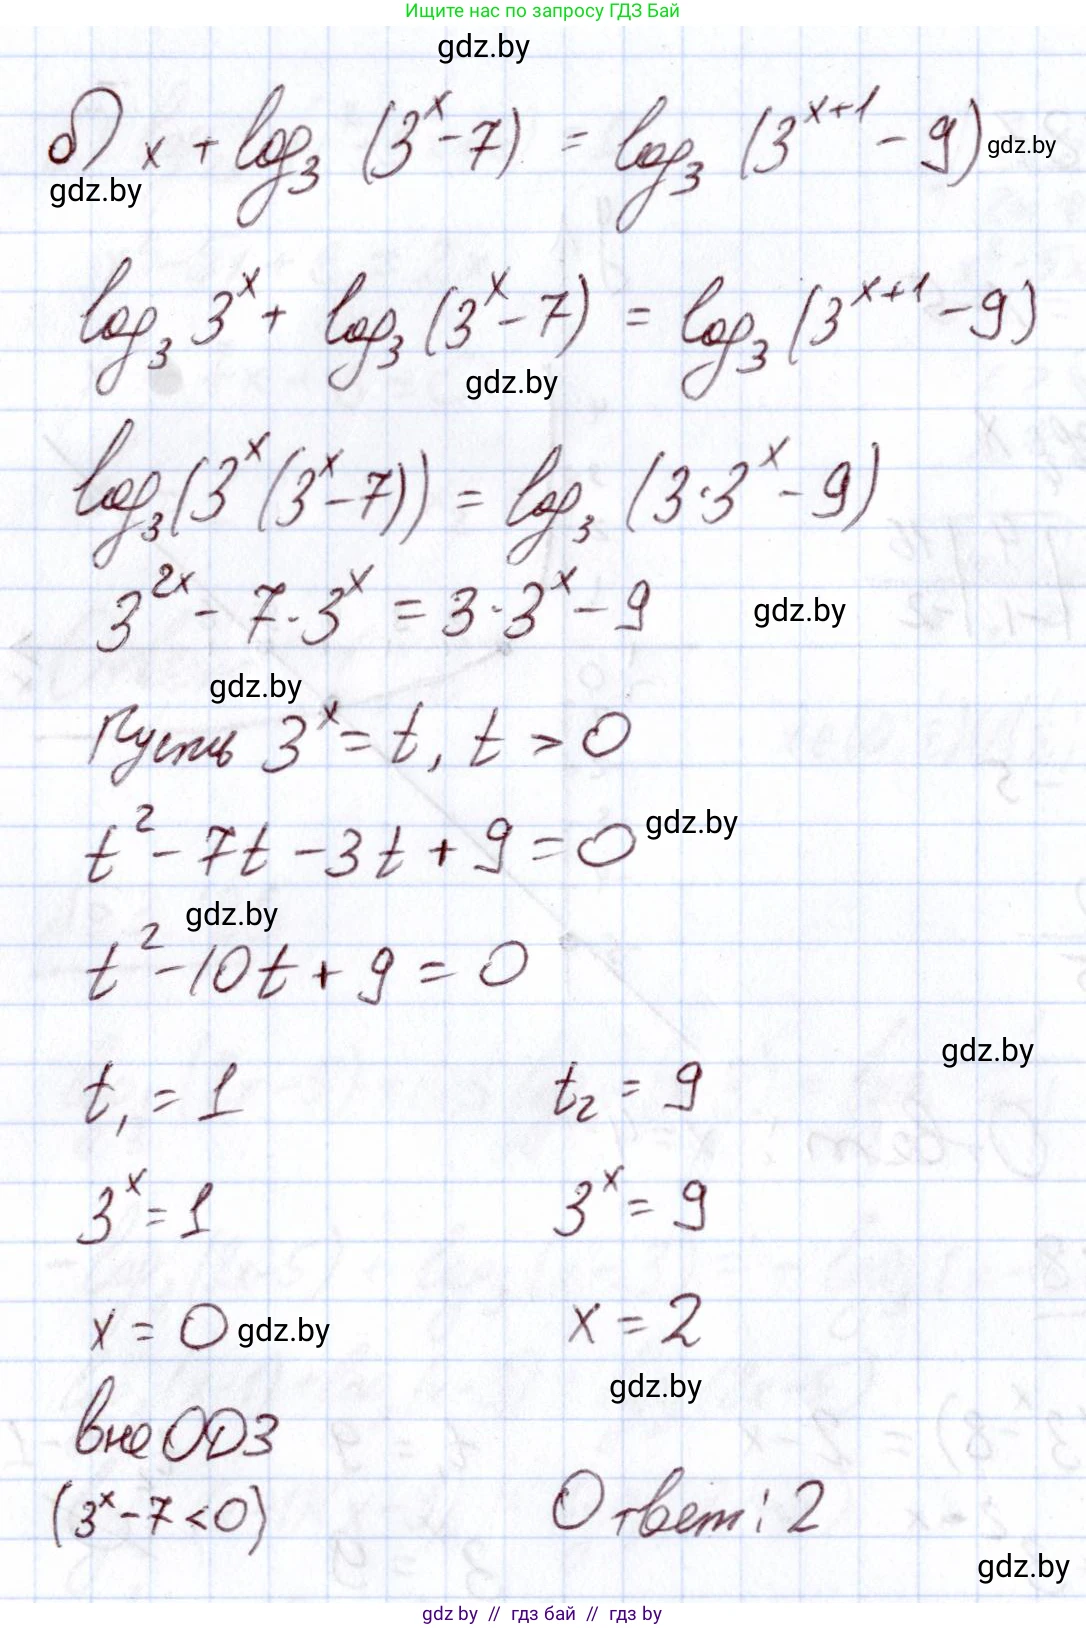 Ищите нас по запросу ГДЗ Бай
gdz.by
б) x + log₃ (3ˣ - 7) = log₃ (3ˣ⁺¹ - 9) gdz.by
gdz.by
log₃ 3ˣ + log₃ (3ˣ - 7) = log₃ (3ˣ⁺¹ - 9)
gdz.by
log₃ (3ˣ (3ˣ - 7)) = log₃ (3·3ˣ - 9)
3²ˣ - 7·3ˣ = 3·3ˣ - 9 gdz.by
gdz.by
Пусть 3ˣ = t, t > 0
t² - 7t - 3t + 9 = 0 gdz.by
gdz.by
t² - 10t + 9 = 0
gdz.by
t₁ = 1 t₂ = 9
3ˣ = 1 3ˣ = 9
x = 0 gdz.by x = 2
gdz.by
вне ОДЗ
(3ˣ - 7 < 0) Ответ: 2
gdz.by
gdz by // гдз бай // гдз by